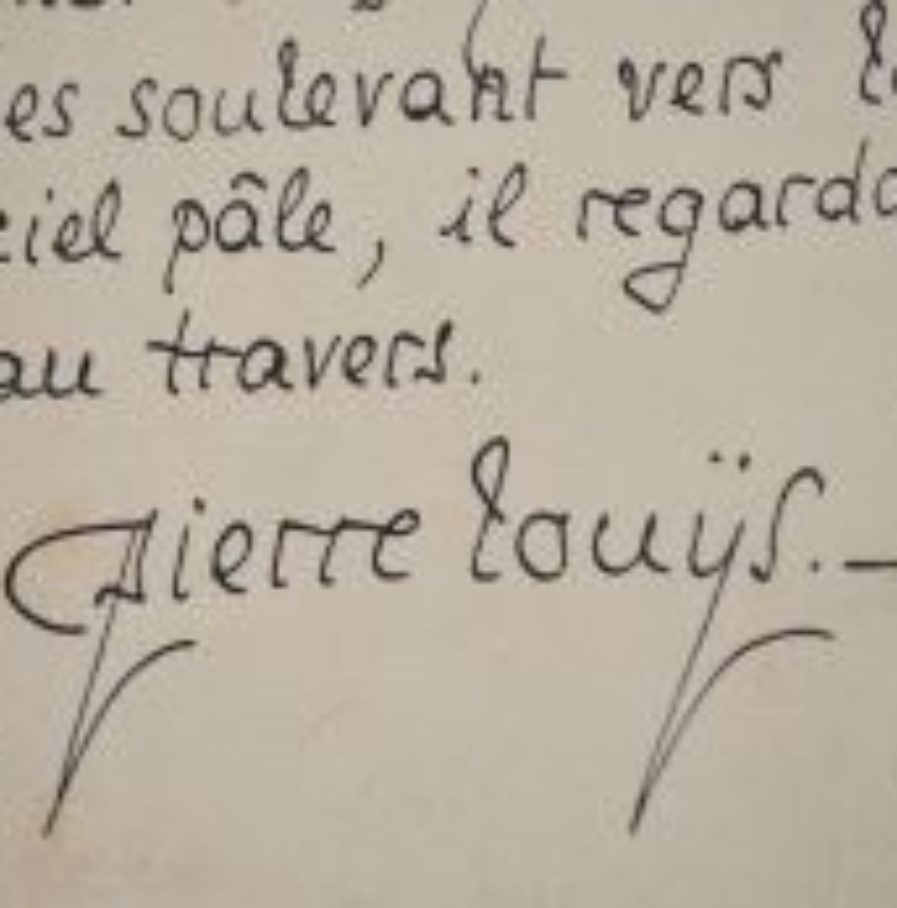 es soulevant vers l
ciel pâle, il regarda
au travers.
Pierre Louÿs. —